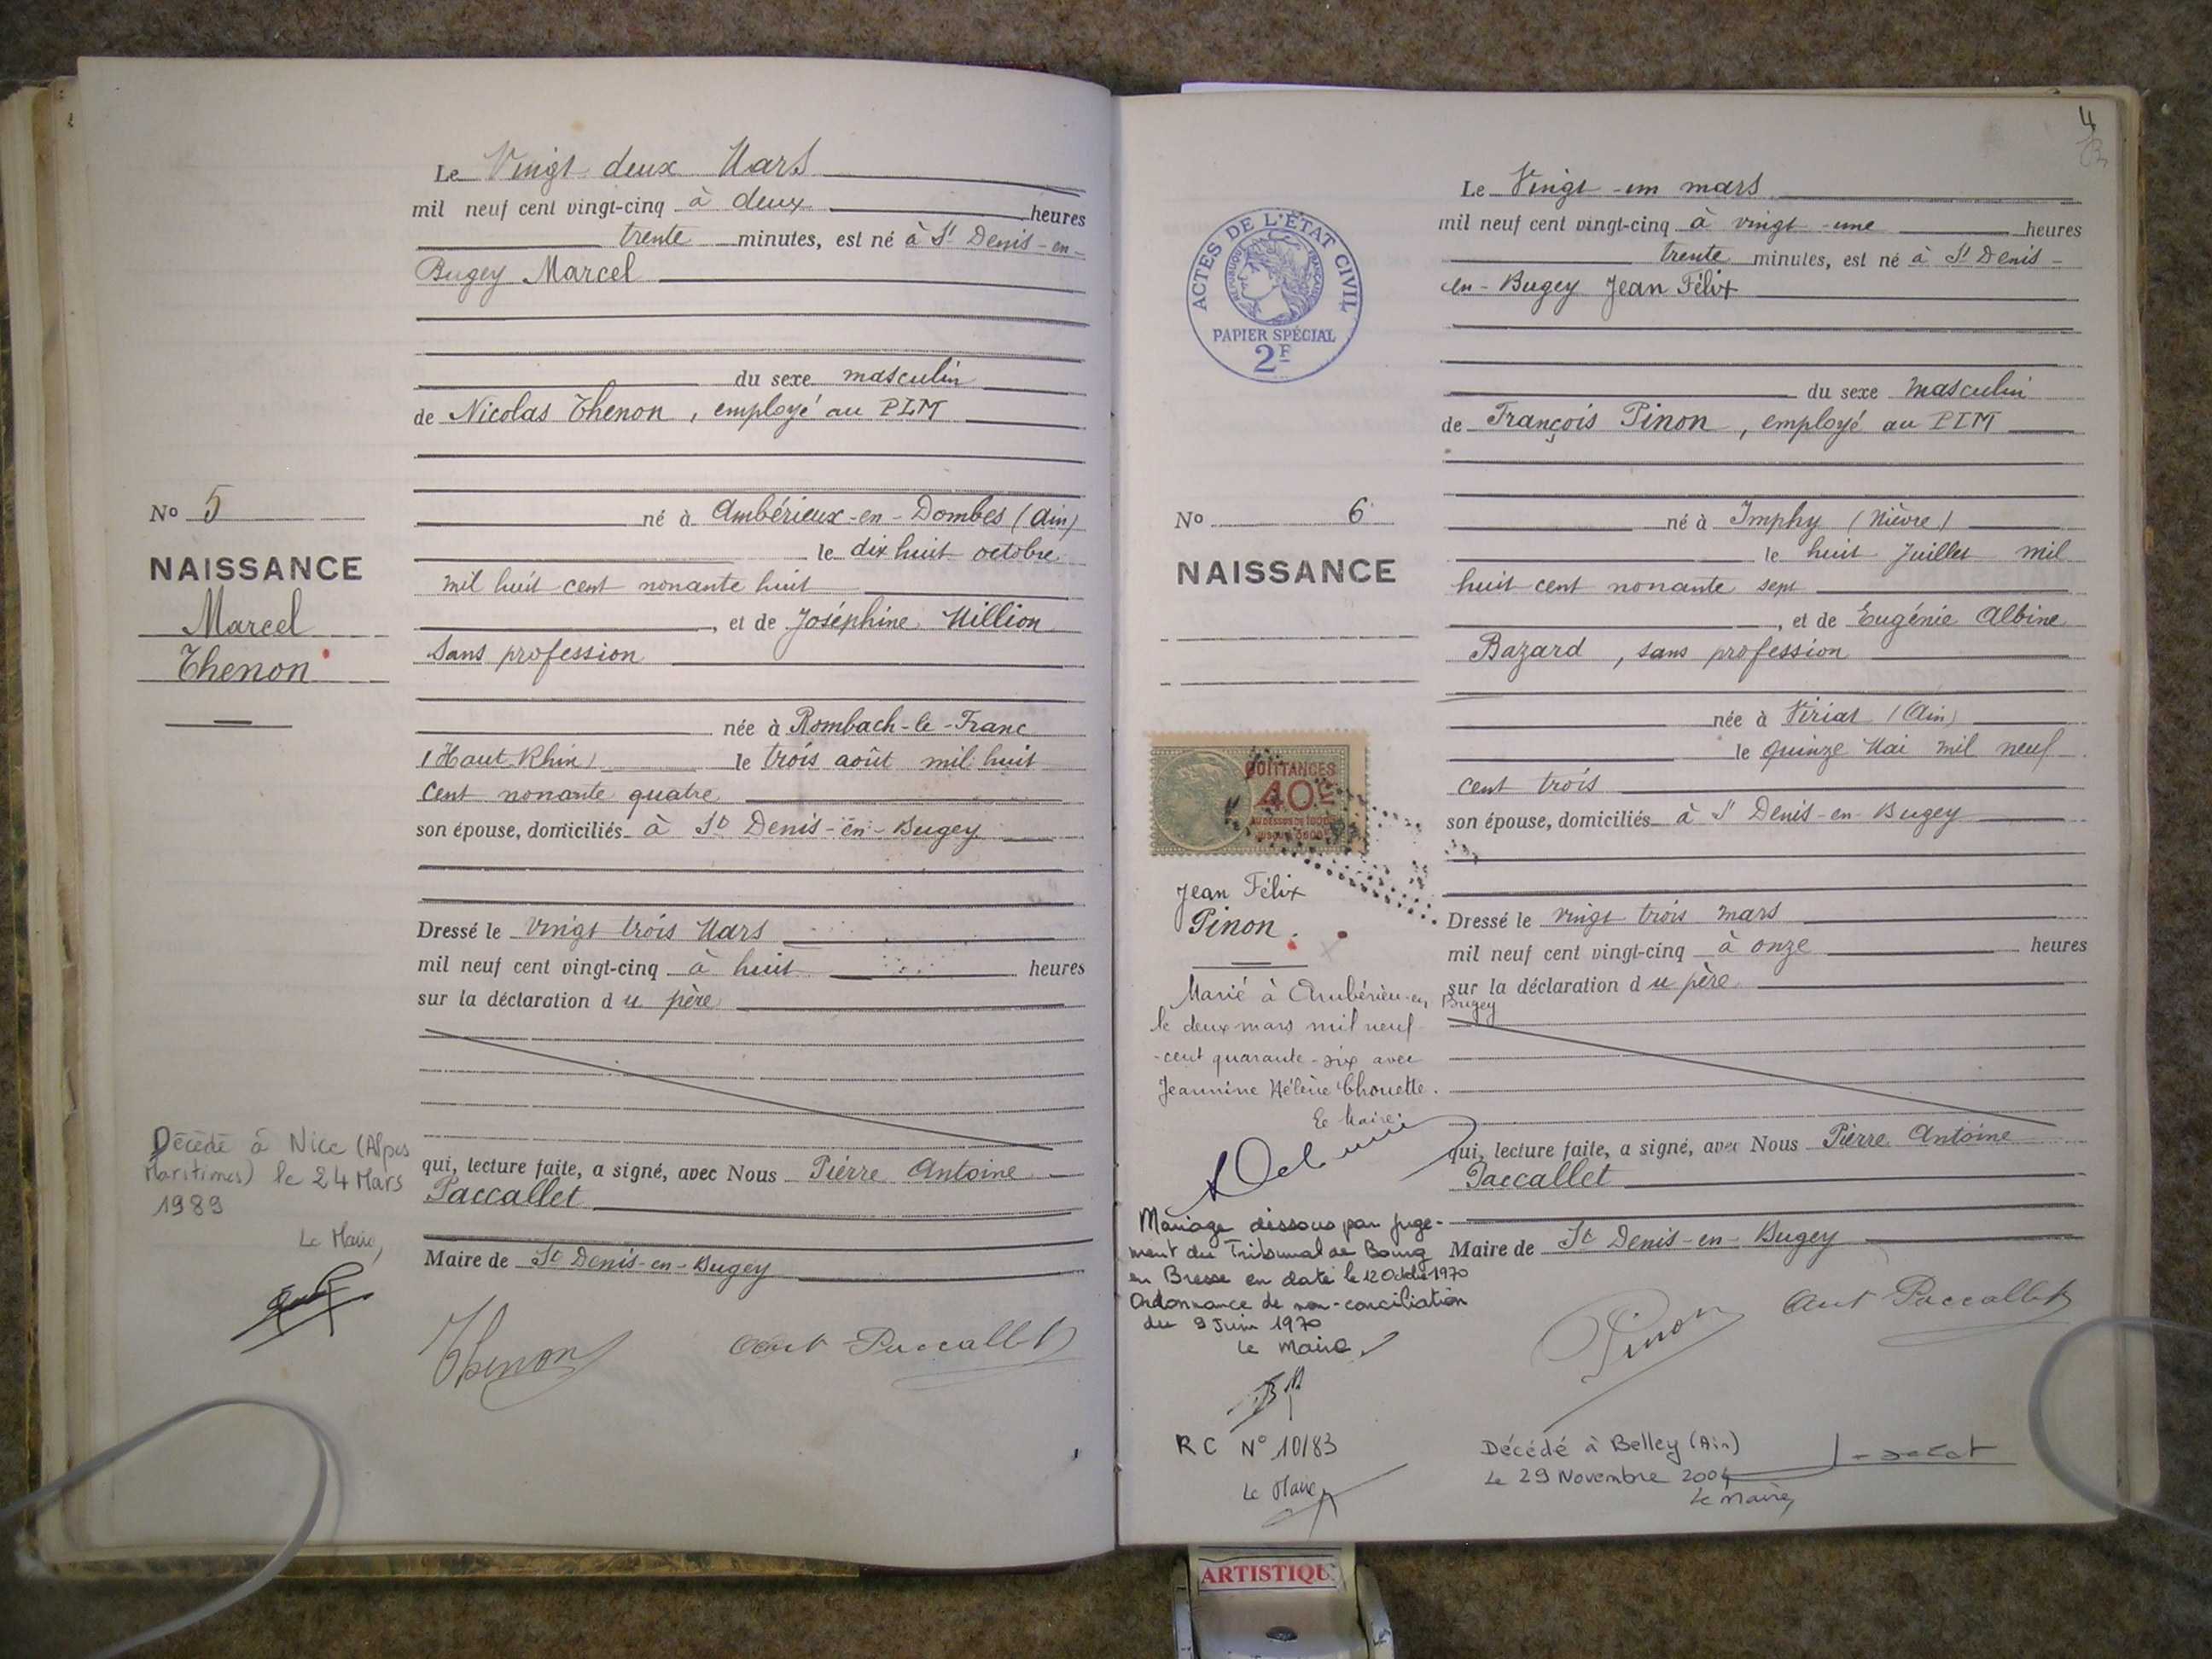 Le Vingt deux Mars
mil neuf cent vingt-cinq à deux heures
trente minutes, est né à St Denis-en-
Bugey Marcel
du sexe masculin
de Nicolas Thenon, employé au PLM
né à Ambérieux-en-Dombes (Ain)
le dix huit octobre
mil huit cent nonante huit
, et de Joséphine Million
Sans profession
née à Rombach-le-Franc
(Haut-Rhin) le trois août mil huit
cent nonante quatre
son épouse, domiciliés à St Denis-en-Bugey
Dressé le vingt trois Mars
mil neuf cent vingt-cinq à huit heures
sur la déclaration du père
qui, lecture faite, a signé, avec Nous Pierre Antoine
Paccallet
Maire de St Denis-en-Bugey
Thenon Ant Paccallet
No 5
NAISSANCE
Marcel
Thenon
Décédé à Nice (Alpes
Maritimes) le 24 Mars
1989
Le Maire,
4
Le Vingt-un mars
mil neuf cent vingt-cinq à vingt-une heures
trente minutes, est né à St Denis-
en-Bugey Jean Félix
du sexe masculin
de François Pinon, employé au PLM
né à Imphy (Nièvre)
le huit Juillet mil
huit cent nonante sept
, et de Eugénie Albine
Bazard, sans profession
née à Viriat (Ain)
le quinze Mai mil neuf
cent trois
son épouse, domiciliés à St Denis-en-Bugey
Dressé le vingt trois mars
mil neuf cent vingt-cinq à onze heures
sur la déclaration du père
qui, lecture faite, a signé, avec Nous Pierre Antoine
Paccallet
Maire de St Denis-en-Bugey
Pinon Ant Paccallet
ACTES DE L'ÉTAT CIVIL
RÉPUBLIQUE FRANÇAISE
PAPIER SPÉCIAL
2F
No 6
NAISSANCE
QUITTANCES
40c
Jean Félix
Pinon.
Marié à Ambérieu-en Bugey
le deux mars mil neuf
-cent quarante-six avec
Jeannine Hélène Chouette.
Le Maire:
Mariage dissous par juge-
ment du Tribunal de Bourg
en Bresse en date le 12 Octobre 1970
Ordonnance de non-conciliation
du 9 Juin 1970
Le Maire,
RC N° 10/83
Le Maire,
Décédé à Belley (Ain)
Le 29 Novembre 2004
Le Maire,
ARTISTIQU